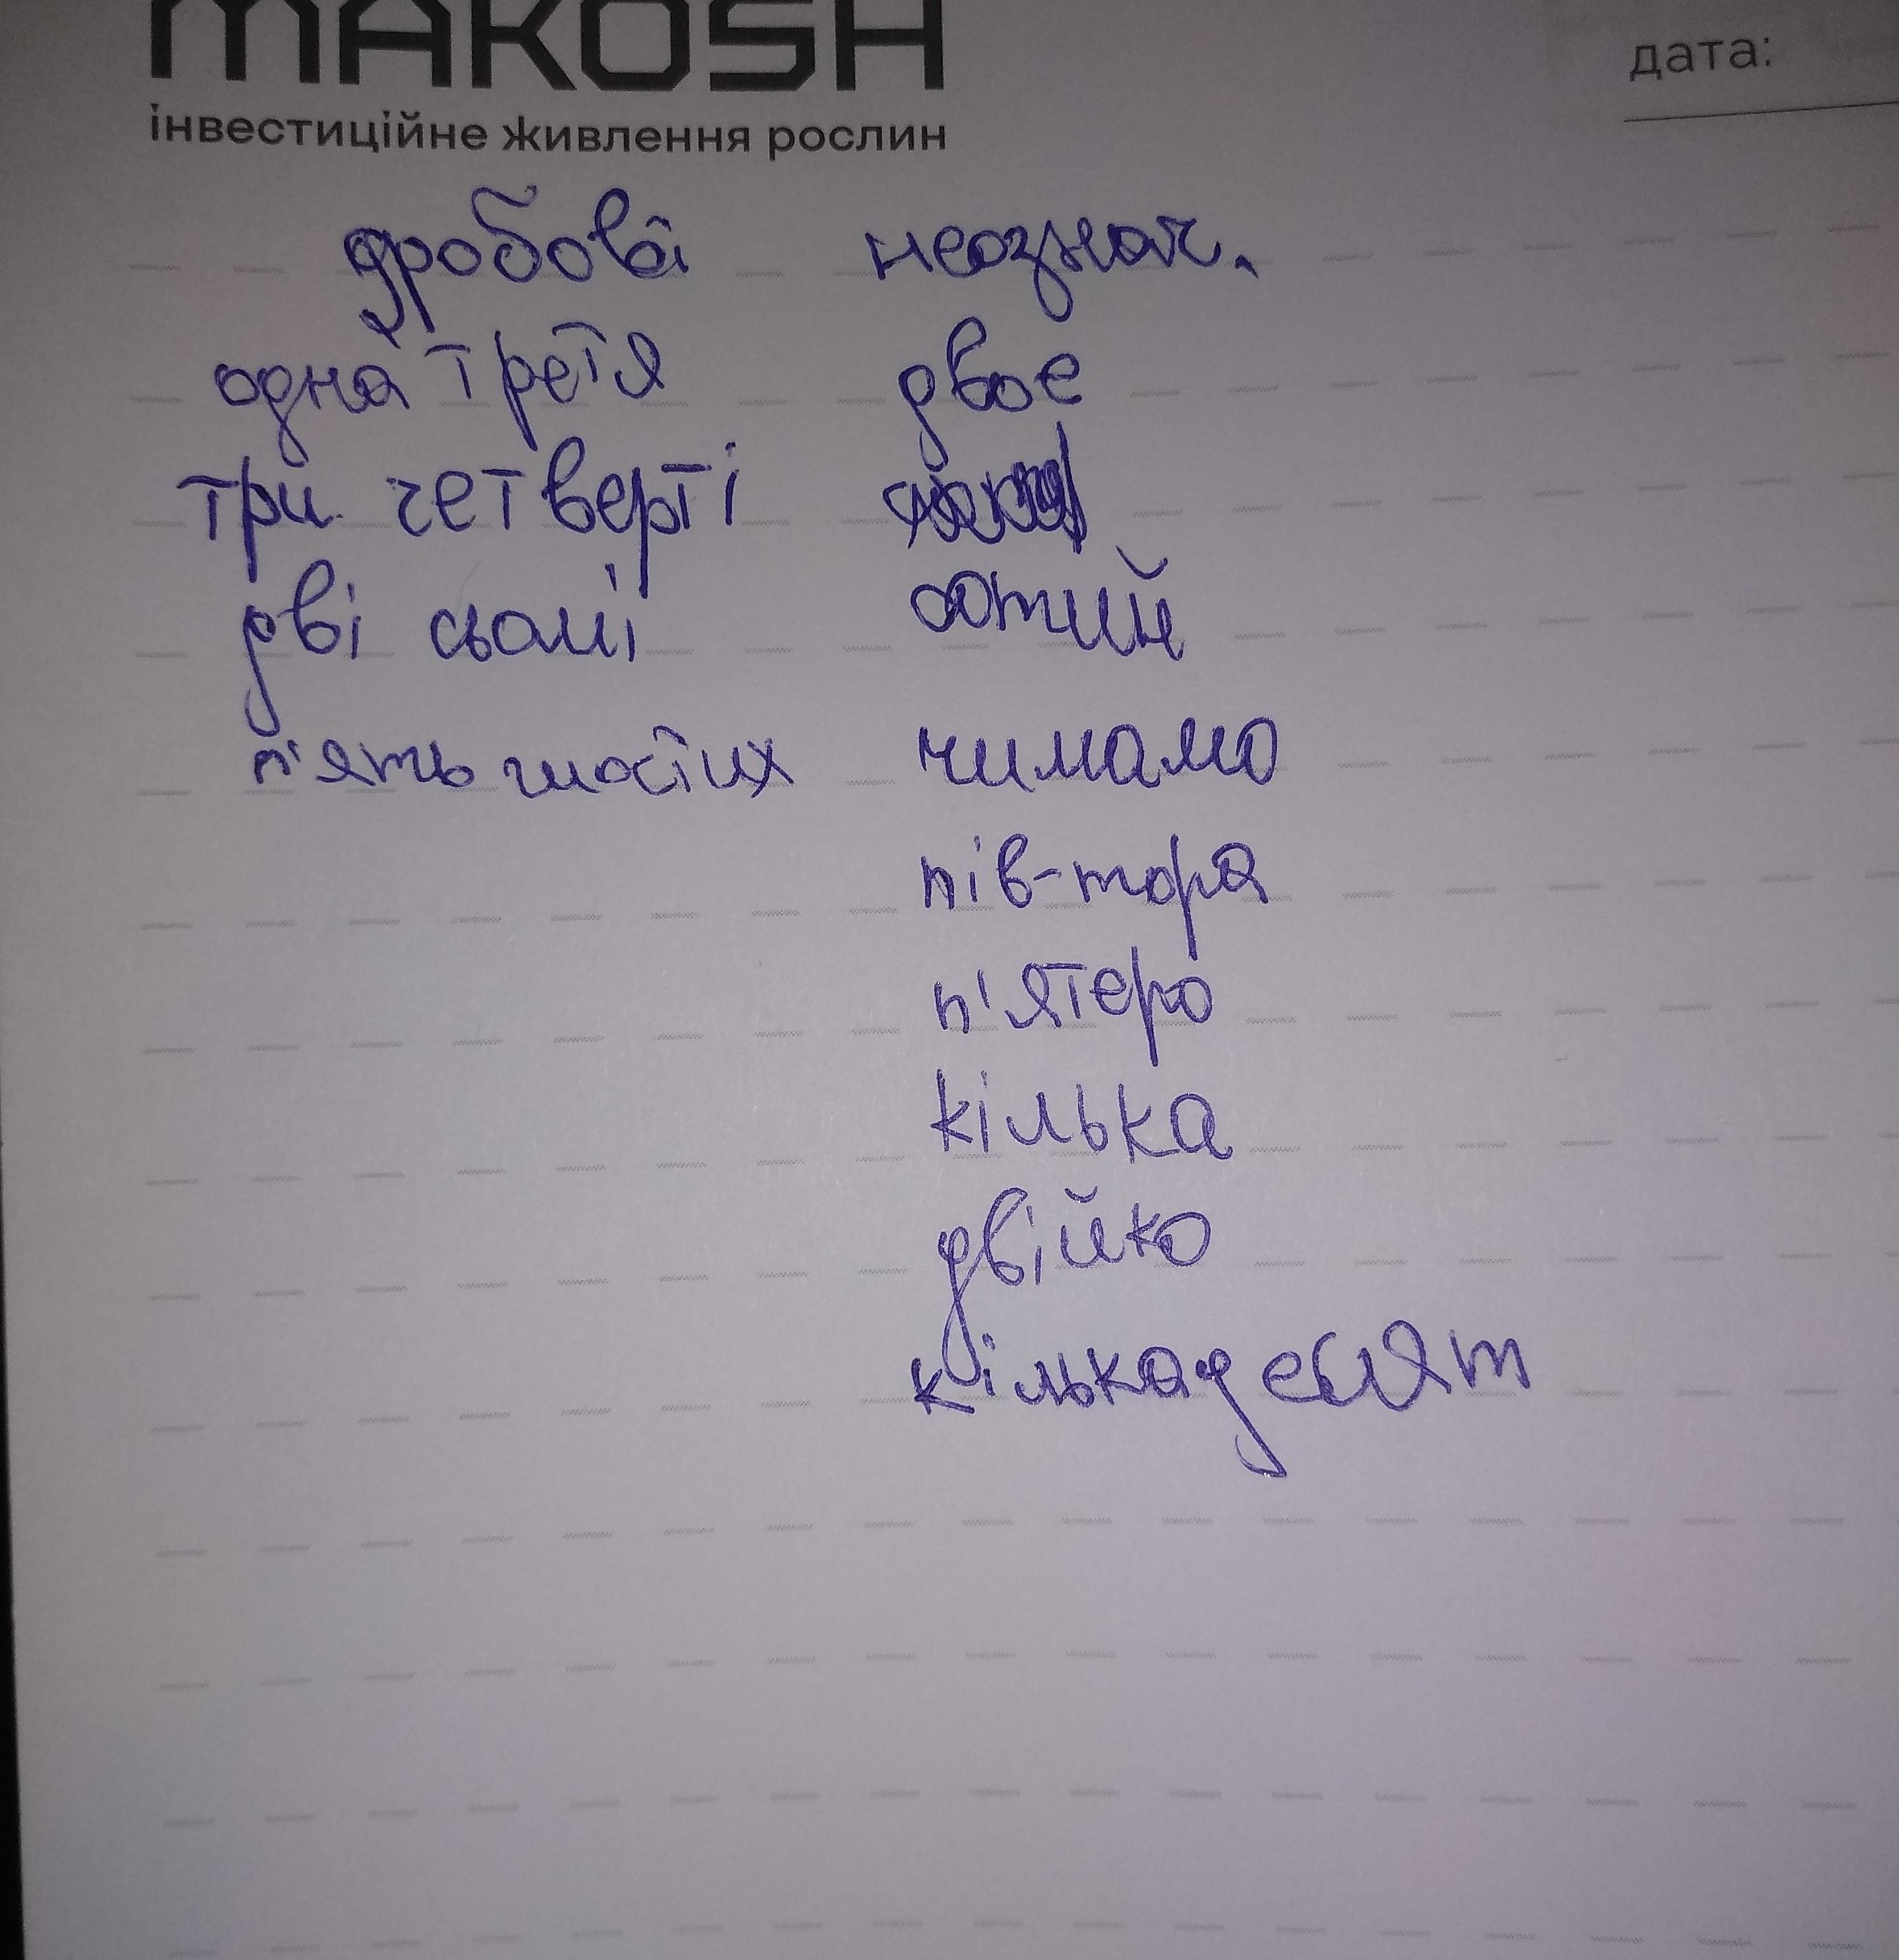 MAKOSH
дата:
інвестиційне живлення рослин
дробові неознач.
одна третя двоє
три четверті
дві сьомі сотий
п'ять шостих чимамо
пів-тора
п'ятеро
кілька
двійко
кількадесят